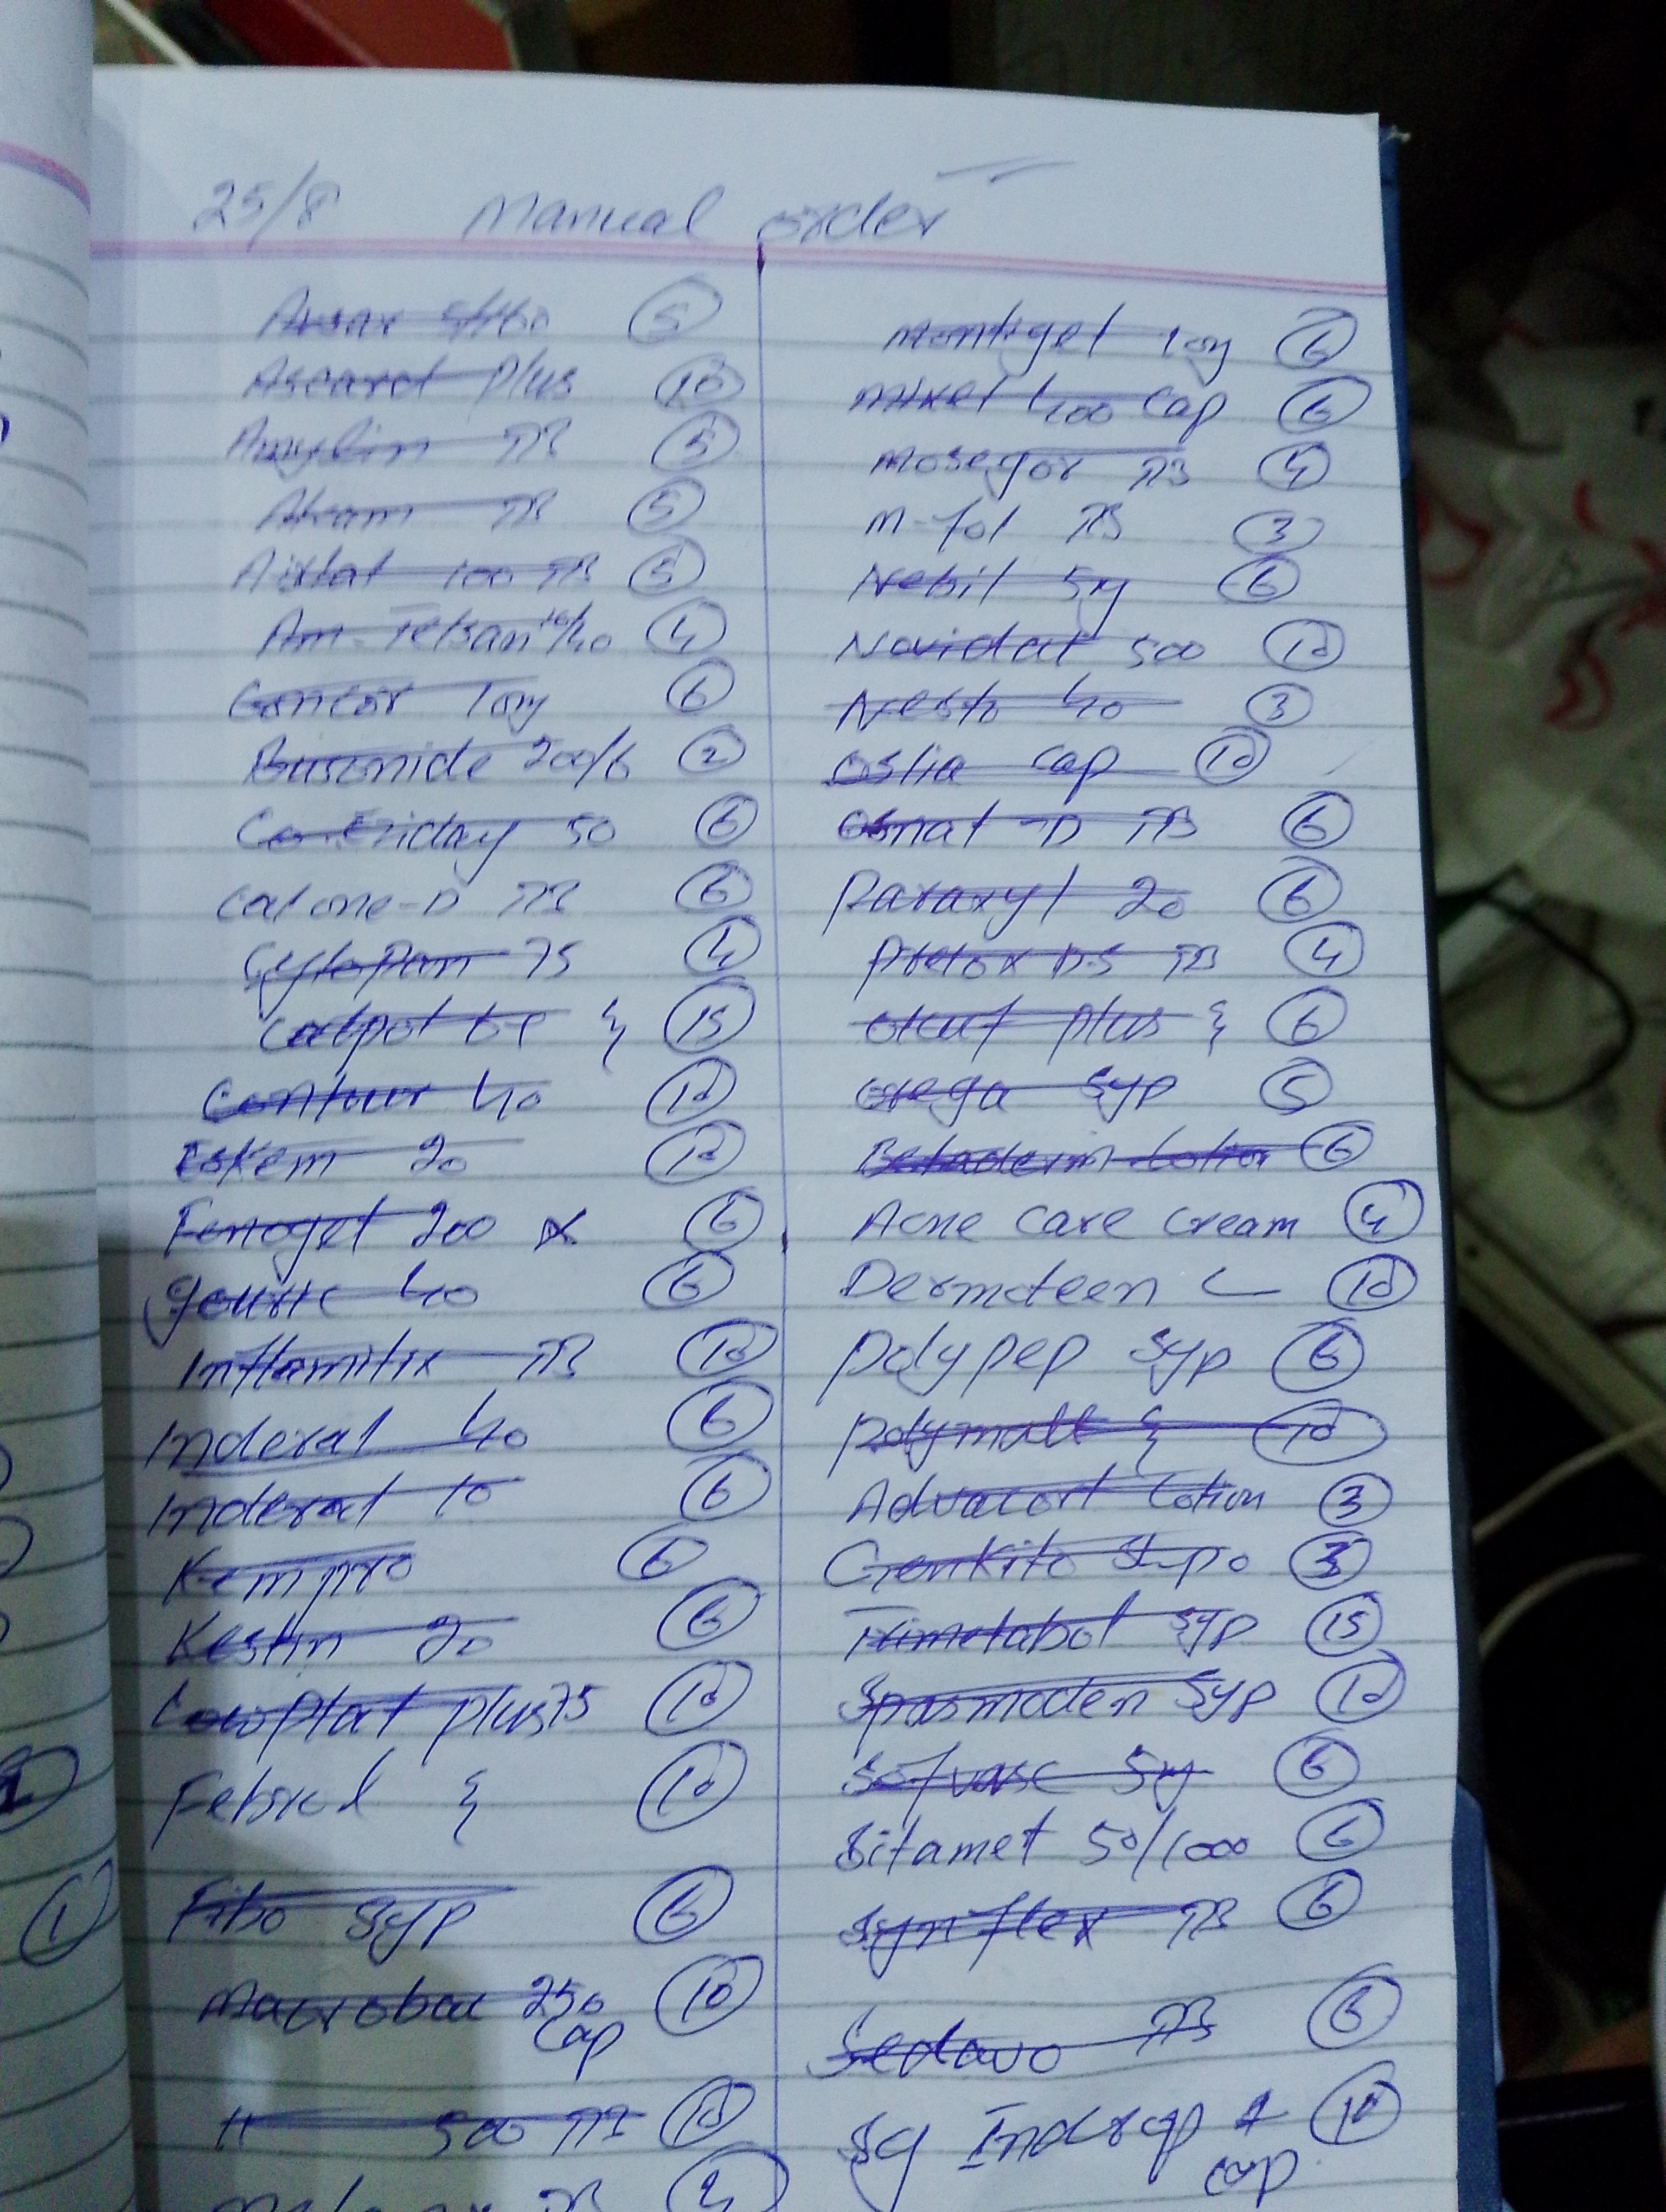 25/8 Manual order
Avsar 5/160 5
Ascard plus 10
Amyclin TB 5
TB 5
Airtat 100 TB 5
Am-Telsan 10/40 4
Concor 10mg 6
Busonide 200/6 2
Co-Eziday 50 6
Calone-D TB 6
Cytopan 75 4
Calpol 15
Contour 40 10
Eskem 20 10
Fenoget 200 6
Gouric 40 6
Inflamitix TB 10
Inderal 40 6
Inderal 10 6
Kempro 6
Kestin 20 6
Lowplat plus 75 10
Febrol 10
Fibo Syp 6
Macrobac 250 10
Cap
500 10
TB
Montiget 10mg 6
400 Cap 6
Mosegor TB 4
M-fol TB 3
Nebil 5mg 6
Novidat 500 10
Nesto 40 3
Oslia Cap 10
Osnat-D TB 6
Paraxyl 20 6
Pretox DS TB 4
plus 6
Syp 5
Betaderm Lotion 6
Acne Care Cream 4
Dermoteen 10
Polypep Syp 6
Polymalt 10
Advacort Lotion 3
GenKito 3
Trimetabol Syp 15
Spasmoden Syp 10
Sofvasc 5mg 6
Sitamet 50/1000 6
Synflex TB 6
Sedavo TB 6
10
Cap